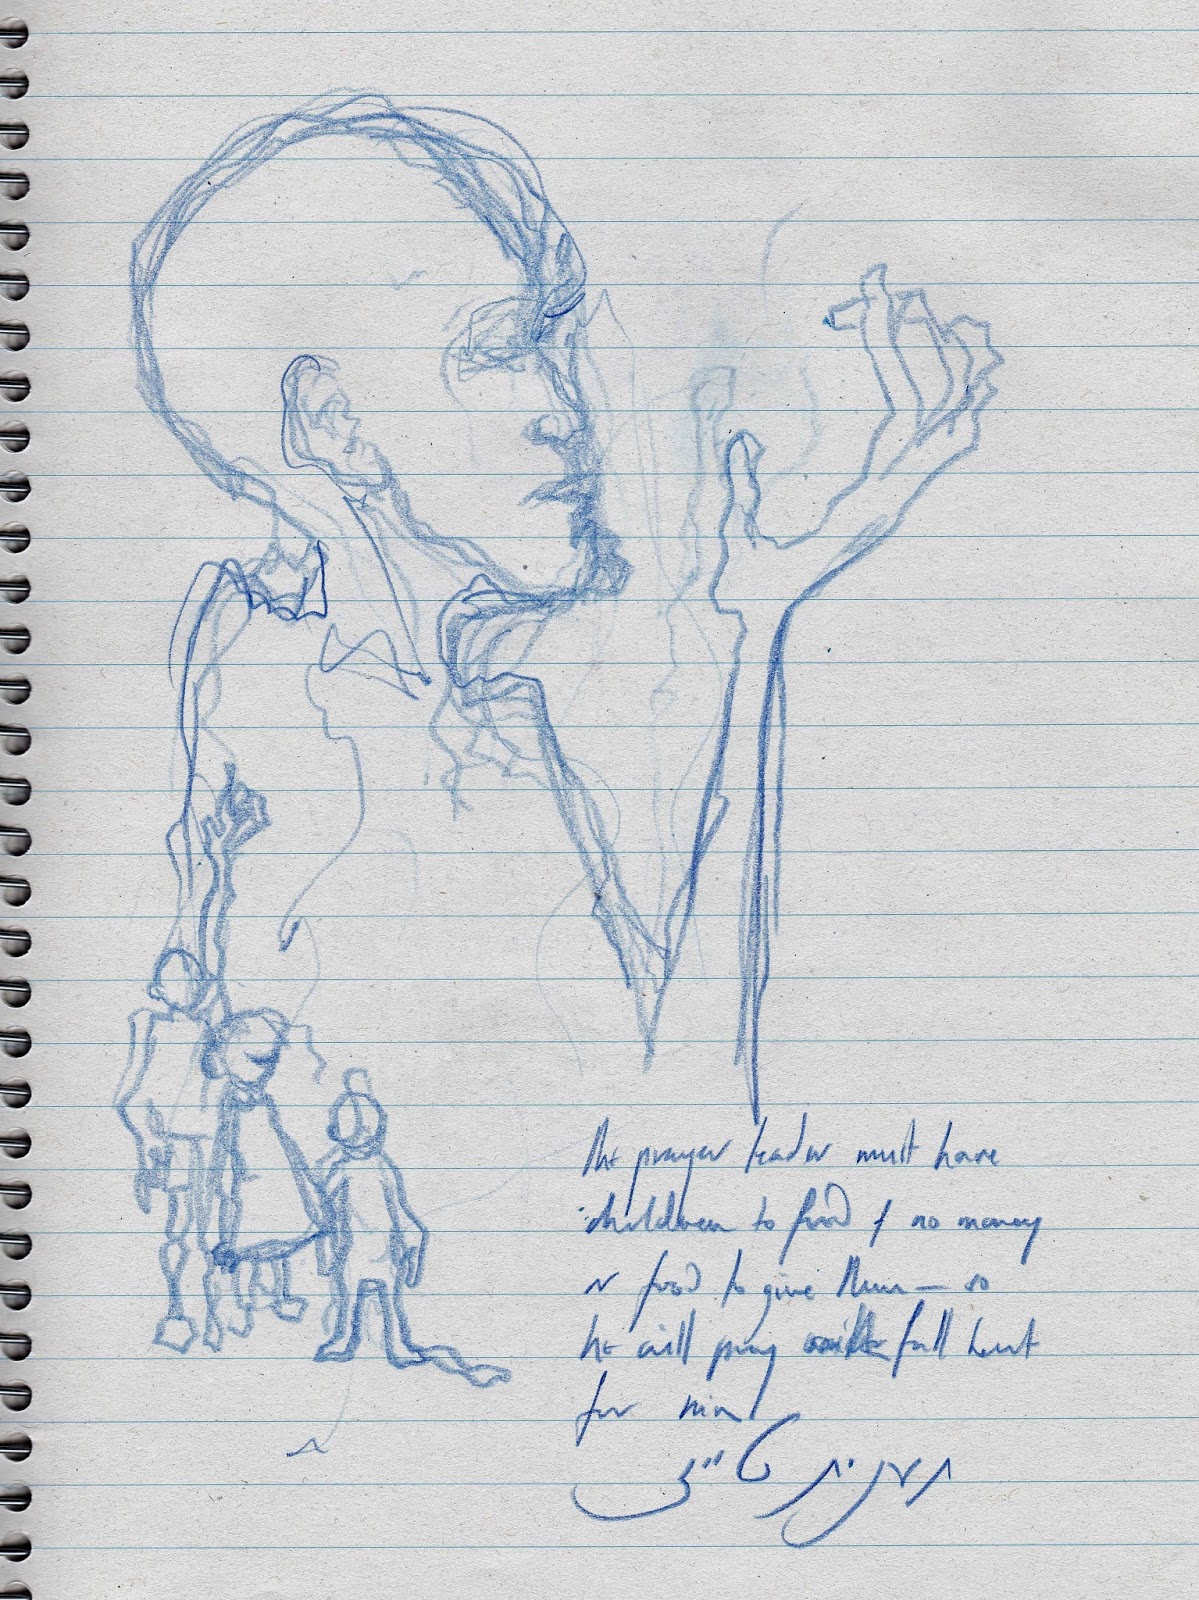 the prayer leader must have
children to feed & no money
or food to give them — so
he will pray with full heart
for rain
תענית ט״ז